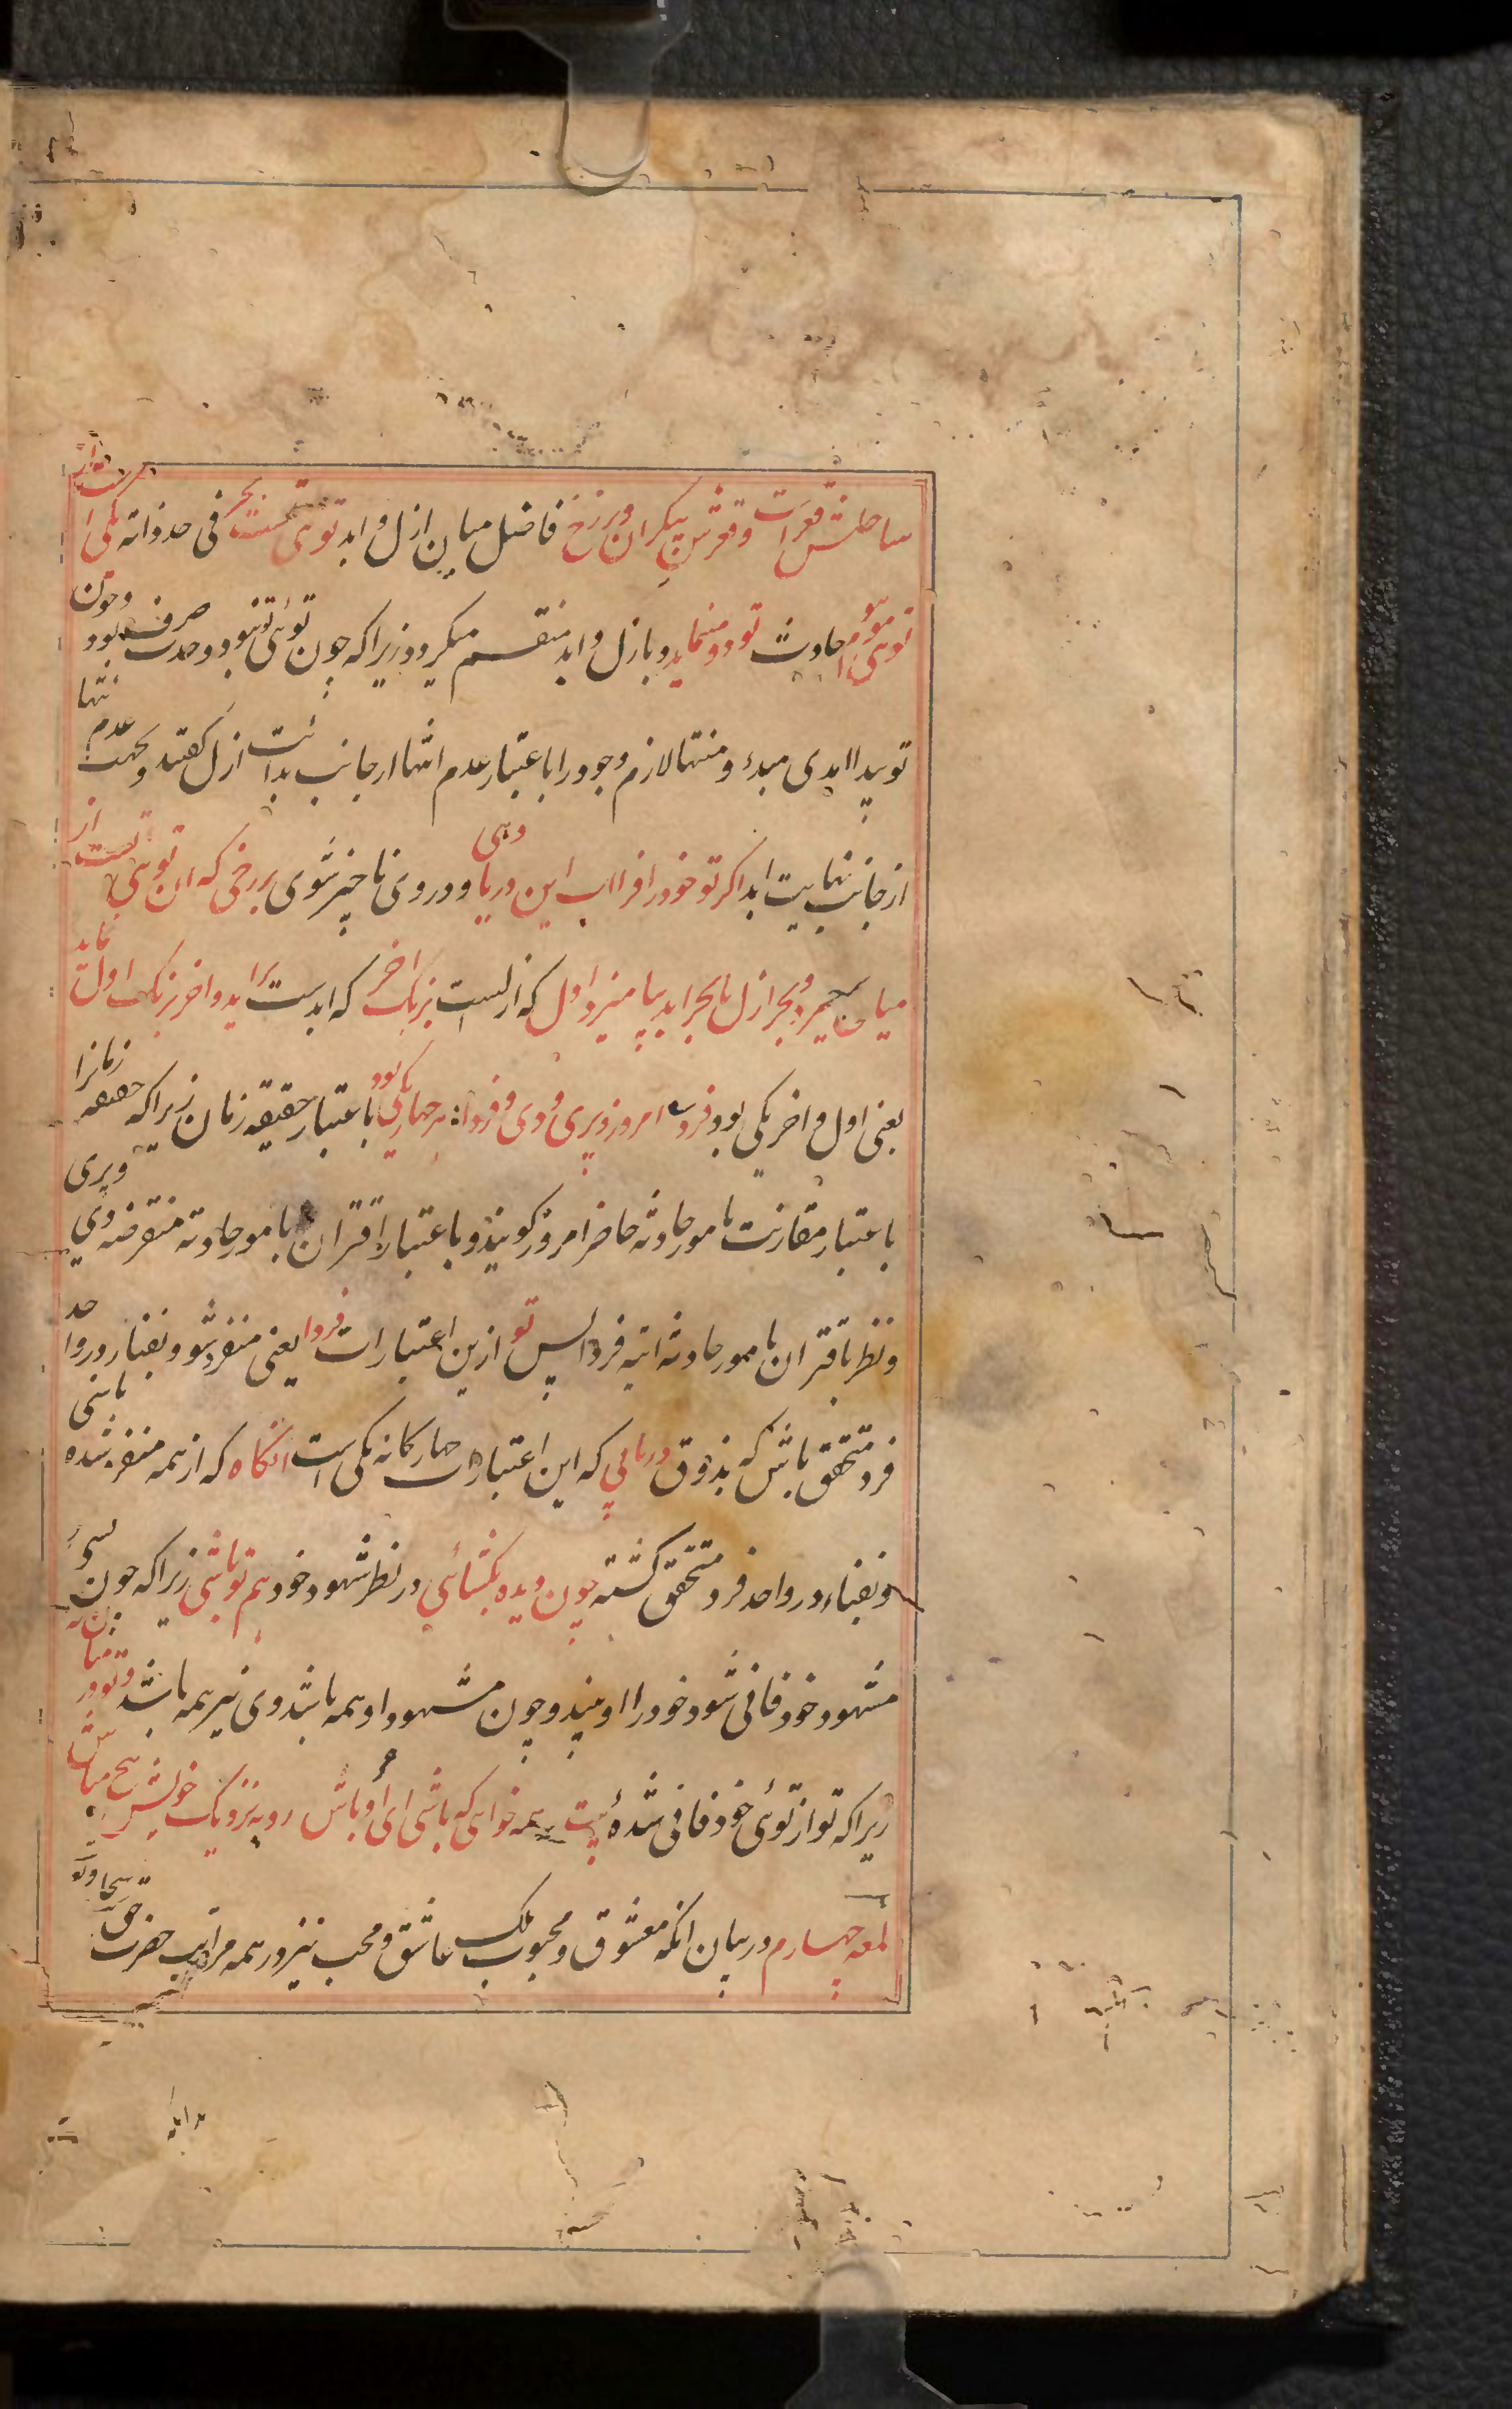 ساحلش قعرست و قعرش بیکران و برزخ فاصل میان ازل و ابد توی تست بحر فی حد ذاته یکی است و از
توی موهوم حادث تو دو مینماید و بازل و ابد منقسم میکردد زیرا که چون توئی تو نبود وحدت صرف بود و چون
تو پیدا ابدی مبدء و منتها لازم وجود را باعتبار عدم انتها از جانب بدائت ازل کفتند و بجهت عدم انتها
از جانب نهایت ابد اکر تو خود را فرا اب این دریا دهی و در وی ناچیز شوی برزخی که ان توهی تست از
میان برخیزد و بحر ازل با بحر ابد بیامیزد اول که ازلست برنک اخر که ابدست براید و اخر برنک اول نماید
یعنی اول و اخر یکی بود فرد امروز و پری و دی و فردا: هر چهار یکی بود باعتبار حقیقه زمان زیرا که حقیقه زمانرا
باعتبار مقارنت بامور حادثه حاضر امروز کویند و باعتبار اقتران بامور حادثه منقرضه دی و پری
و نظر باقتران بامور حادثه اتیه فردا پس تو ازین اعتبارات فردا یعنی منفرد شو و بفنا در واحد
فرد متحقق باش که بذوق دریابی که این اعتبارات چهارکانه یکی است انکاه که از همه منفرد شده باشی
و بفناء در واحد فرد متحقق کشته چون دیده بکشائی در نظر شهود خود هم تو باشی زیرا که چون کسی در
مشهود خود فانی شود خود را او بیند و چون مشهود او همه باشد وی نیز همه باشد و تو در میان نه
زیرا که تو از توئی خود فانی شدهٔ بیت همه خواهی که باشی ای اوباش رو بنزدیک خویش هیچ مباش
لمعه چهارم در بیان انکه معشوق و محبوب بلک عاشق و محب نیز در همه مراتب حضرت حق